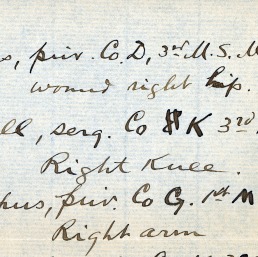 s, priv. Co. D, 3rd M. S. M
wound right hip.
ll, serg. Co K 3rd
Right Knee.
hus, priv. Co G. 1st M
Right arm